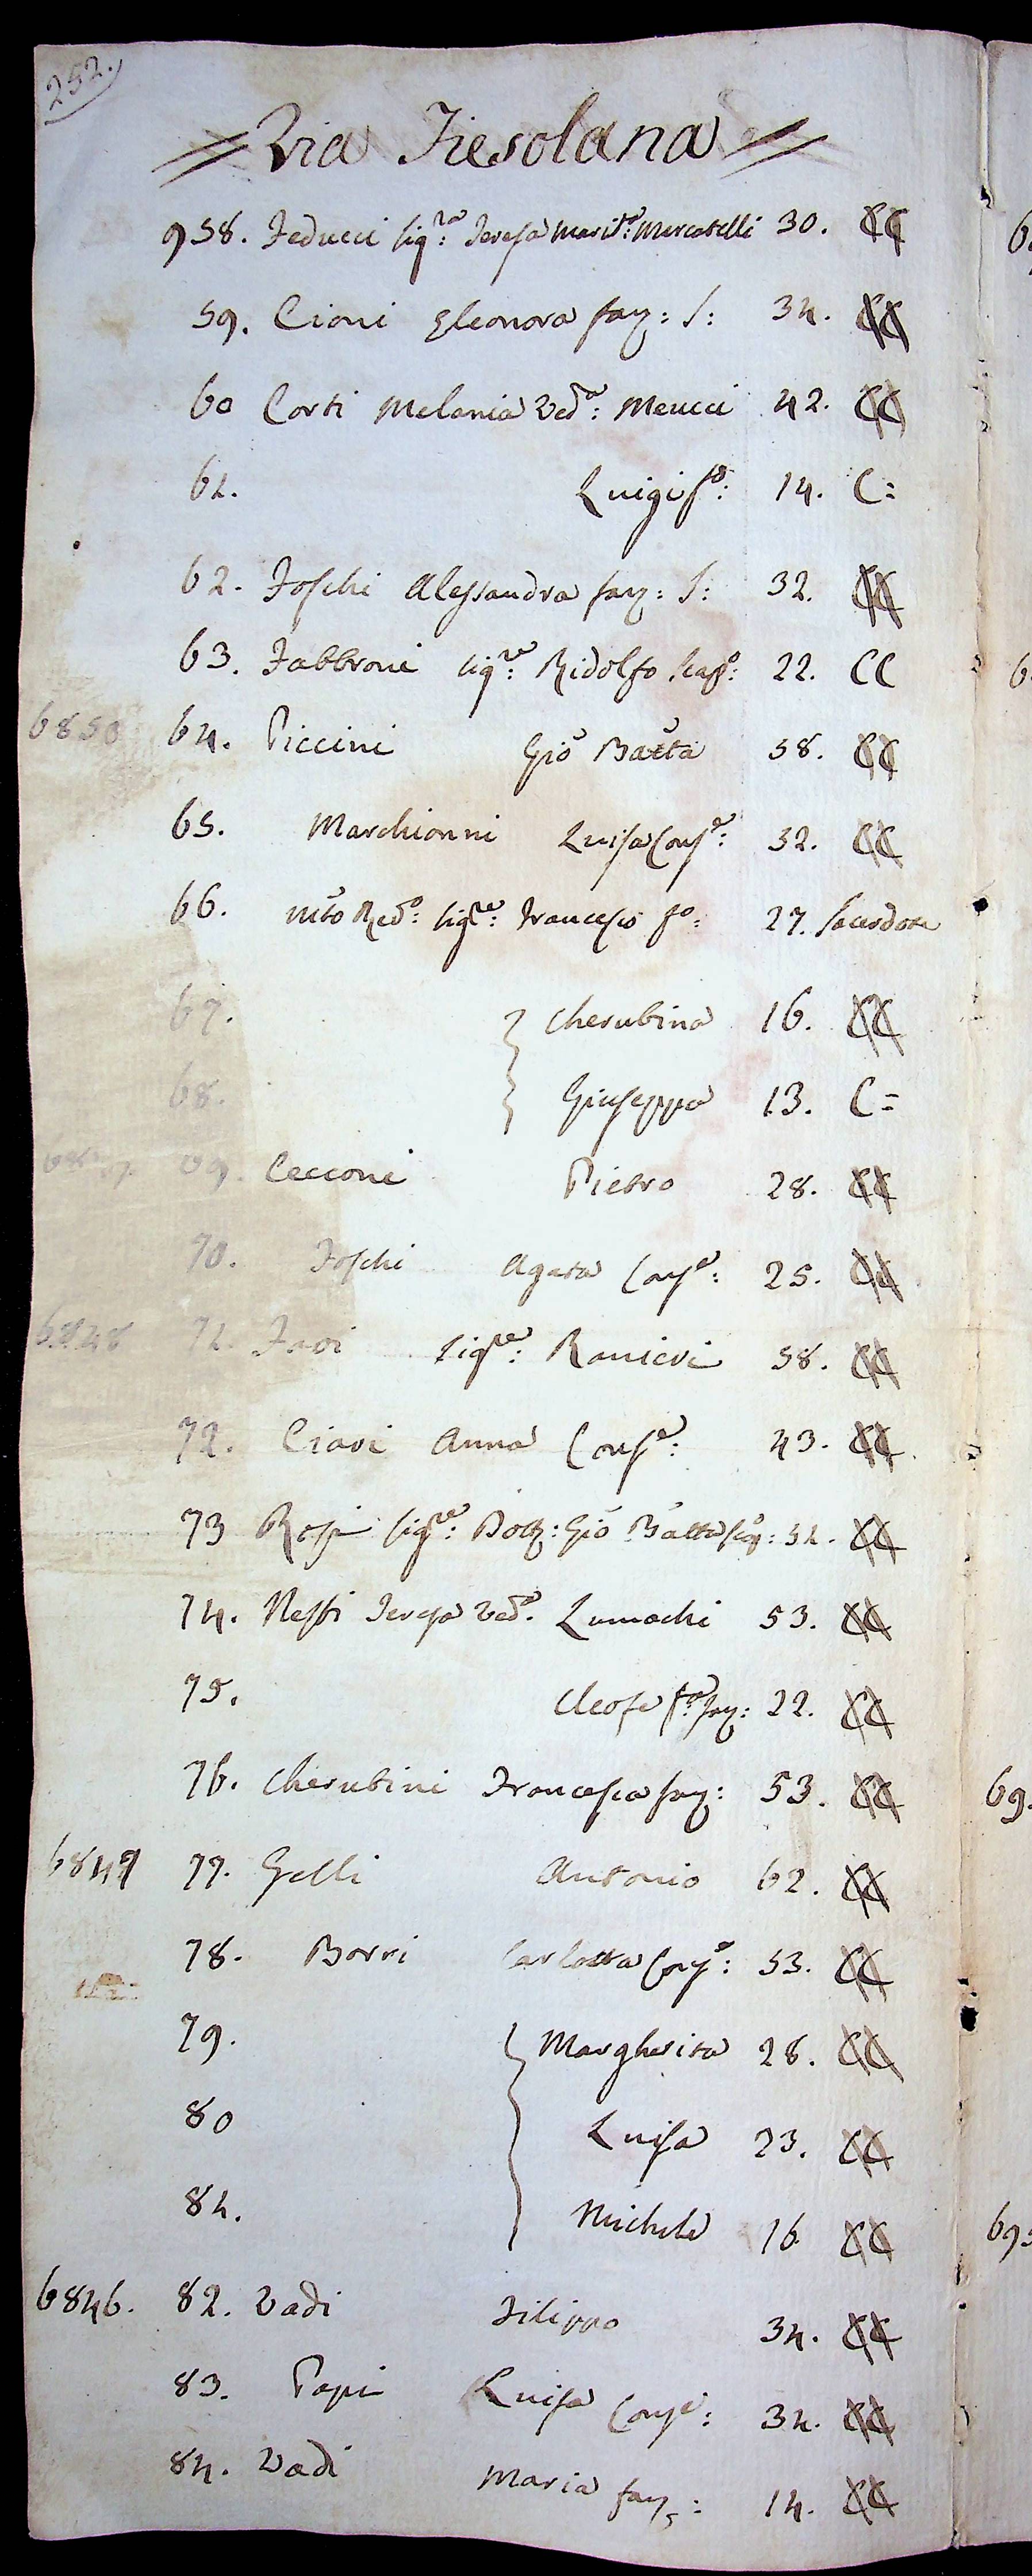 252.
= Via Fiesolana =
958. Feducci Sig:ra Teresa Marit:a Mercatelli 30. CC
59. Cioni Eleonora fan: S: 34. CC
60 Corti Melania Ved:a Meucci 42. CC
61. Luigi f:o 14. C=
62. Foschi Alessandra fan: S: 32. CC
63. Fabbroni Sig:re Ridolfo Scap:o 22. CC
6850 64. Piccini Gio Batta 58. CC
65. Marchionni Luisa Cons:e 32. CC
66. Mto Red:o Sig:re Francesco f:o 27. Sacerdote
67. Cherubina 16. CC
68. Giuseppa 13. C=
69. Cecconi Pietro 28. CC
70. Foschi Agata Cons:e 25. CC
6848 71. Favi Sig:re Ranieri 58. CC
72. Ciari Anna Cons:e 43. CC
73 Rossi Sig:re Dott: Gio Batta 31. CC
74. Nesti Teresa Ved:a Lumachi 53. CC
75. Cleofe f:a fan: 22. CC
76. Cherubini Francesca fan: 53. CC
6847 77. Gelli Antonio 62. CC
78. Borri Carlotta Cons:e 53. CC
79. Margherita 28. CC
80 Luisa 23. CC
81. Michele 16 CC
6846. 82. Vadi Filippo 34. CC
83. Papi Luisa Cons:e 34. CC
84. Vadi Maria fan: 14. CC